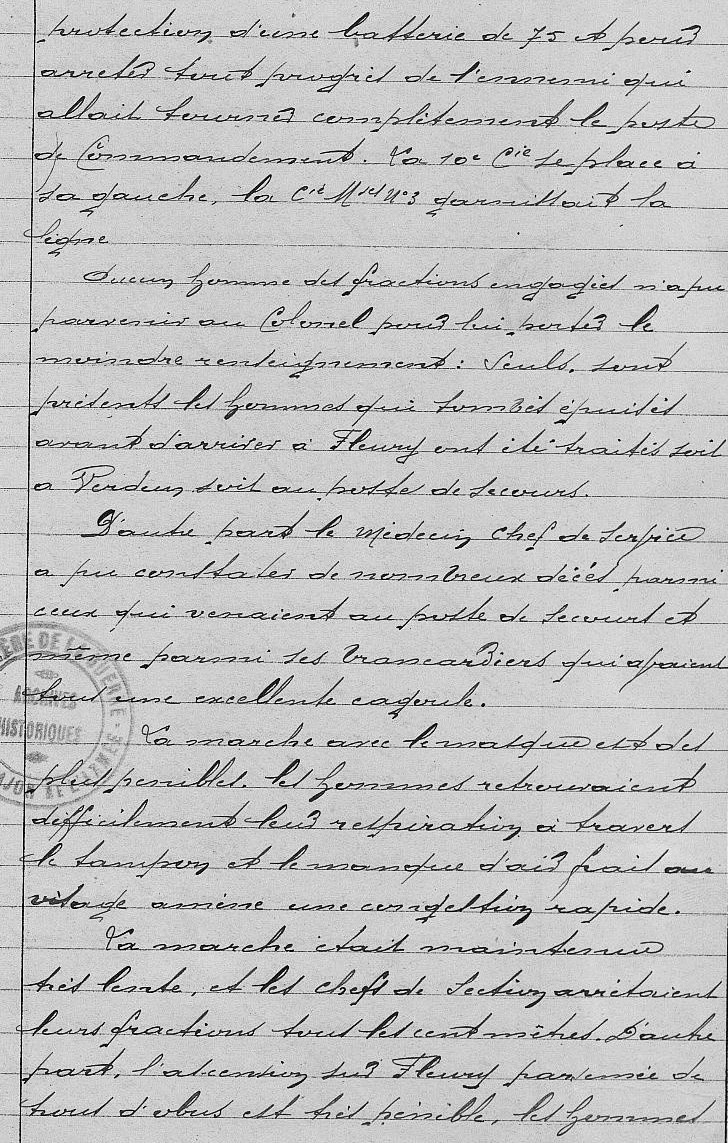 protection d'une batterie de 75 et pour
arrêter tout progrès de l'ennemi qui
allait tourner complètement le poste
de Commandement. La 10e Cie se place à
sa gauche, la Cie Mses No3 garnissait la
ligne
Aucun homme des fractions engagées n'a pu
parvenir au Colonel pour lui porter le
moindre renseignement : Seuls, sont
présents les hommes qui tombés épuisés
avant d'arriver à Fleury ont été traités soit
a Verdun soit au poste de secours.
D'autre part le Médecin Chef de Service
a pu constater de nombreux décès parmi
ceux qui venaient au poste de secours et
même parmi ses brancardiers qui avaient
tous une excellente cagoule.
La marche avec le masque est des
plus penibles, les hommes retrouvaient
difficilement leur respiration à travers
le tampon et le manque d'air frait au
visage amène une congestion rapide.
La marche était maintenue
très lente, et les chefs de Section arrêtaient
leurs fractions tous les cent mètres. D'autre
part, l'ascension sur Fleury parsemée de
trous d'obus est très pénible, les hommes
MINISTÈRE DE LA GUERRE
ARCHIVES
HISTORIQUES
MAJOR DE L'ARMÉE